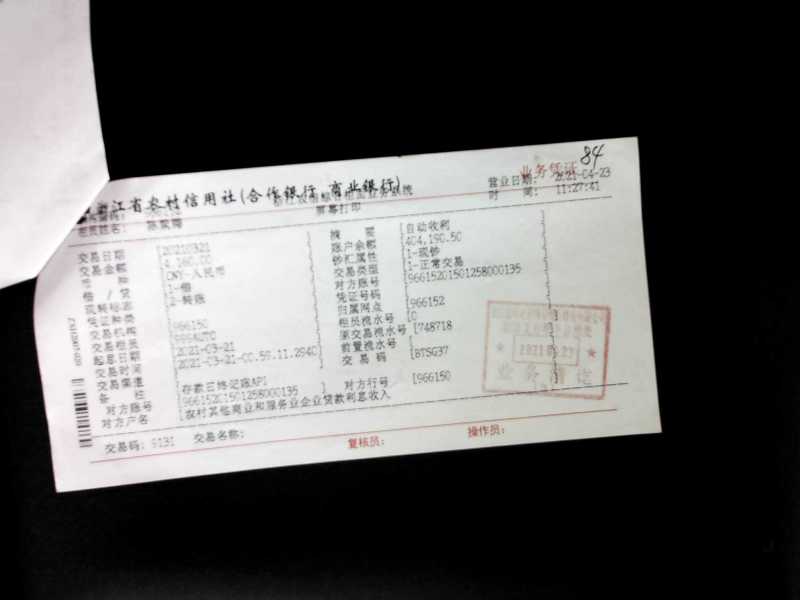 84
业务凭证
江省农村信用社(合作银行、商业银行)
屏幕打印
营业日期: 2021-04-23
时 间: 11:27:41
摘 要 [自动收利
交易日期 [20210321
账户余额 [404,190.50
交易金额 160.00
钞汇属性 [1-现钞
币 种 CNY-人民币
交易类型 [1-正常交易
借 / 贷 1-借
对方账号 [966152015012580001​35
现转标志 2-转账
凭证号码
凭证种类
归属网点 [966152
交易机构 966150
柜员流水号 [0
交易柜员
原交易流水号 [748718
起息日期 2021-03-21
前置流水号
交易时间 2021-03-21-00.59.11.2940
交 易 码 [BTSG37
交易渠道
备 注 存款日终记账API
对方账号 966152015012580001​35
对方行号 [966150
对方户名 农村其他商业和服务业企业贷款利息收入
交易码: 9131 交易名称:
复核员: 操作员: